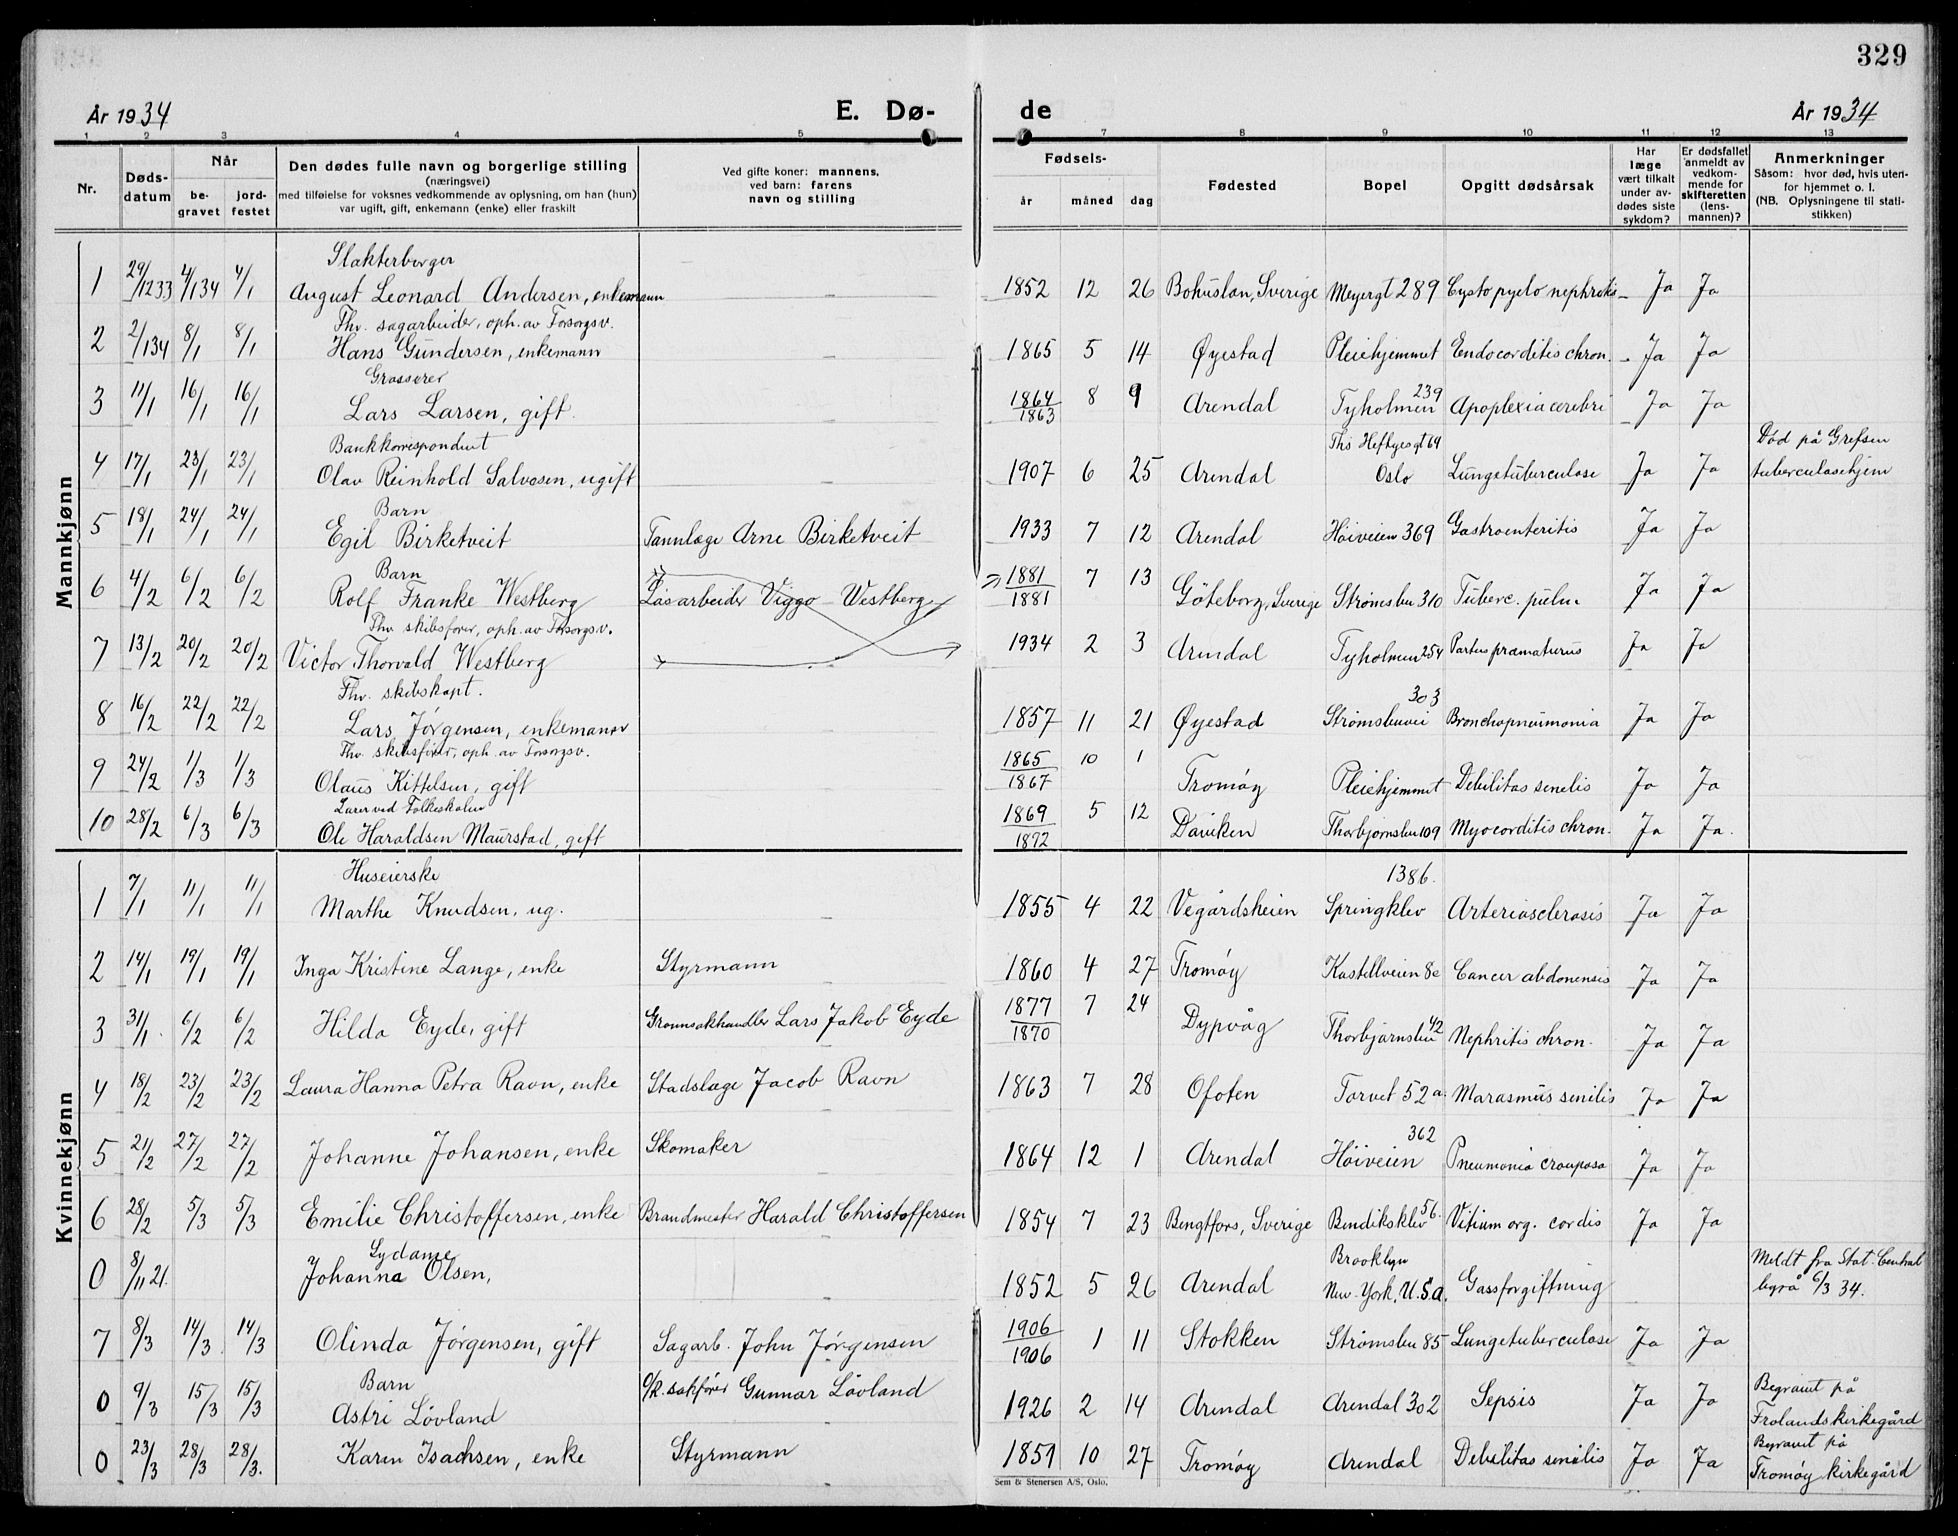 329
År 1934 E. Dø- de År 1934
1 2 3 4 5 7 8 9 10 11 12 13
Nr. Døds-datum Når be-gravet jord-festet Den dødes fulle navn og borgerlige stilling (næringsvei) med tilføielse for voksnes vedkommende av oplysning, om han (hun) var ugift, gift, enkemann (enke) eller fraskilt Ved gifte koner: mannens, ved barn: farens navn og stilling Fødsels- år måned dag Fødested Bopel Opgitt dødsårsak Har læge vært tilkalt under av-dødes siste sykdom? Er dødsfallet anmeldt av vedkom-mende for skifteretten (lens-mannen)? Anmerkninger Såsom: hvor død, hvis uten-for hjemmet o. l. (NB. Oplysningene til stati-stikken)
Mannkjønn
Slakterborger
1 29/1233 4/134 4/1 August Leonard Andersen, enkemann — 1852 12 26 Bohuslan, Sverige Meyergt 289 Cystopyelo nephritis Ja Ja
Fhv. sagarbeider, oph. av Forsorgsv.
2 2/134 8/1 8/1 Hans Gundersen, enkemann — 1865 5 14 Øyestad Pleiehjemmet Endocorditis chron. Ja Ja
Grosserer
3 11/1 16/1 16/1 Lars Larsen, gift. — 1864/1863 8 9 Arendal Tyholmen 239 Apoplexia cerebri Ja Ja
Bankkorrespondent
4 17/1 23/1 23/1 Olav Reinhold Salvosen, ugift — 1907 6 25 Arendal Ths Heftyesgt 64 Oslo Lungetuberculose Ja Ja Død på Grefsen tuberculosehjem
Barn
5 18/1 24/1 24/1 Egil Birketveit Tannlæge Arne Birketveit 1933 7 12 Arendal Höiveien 369 Gastroenteritis Ja Ja
Barn
6 4/2 6/2 6/2 Rolf Franke Westberg Løsarbeider Viggo Westberg 1881/1881 7 13 Göteborg, Sverige Strömsbu 310 Tuberc. pulm. Ja Ja
Fhv. skibsfører, oph. av Forsorgsv.
7 13/2 20/2 20/2 Victor Thorvald Westberg 1934 2 3 Arendal Tyholmen 254 Partus præmaturus Ja Ja
Fhv. skibskapt.
8 16/2 22/2 22/2 Lars Jørgensen, enkemann 1857 11 21 Øyestad Strömsbuvei 303 Bronchopneumonia Ja Ja
Fhv. skibsfører, oph. av Forsorgsv.
9 24/2 1/3 1/3 Olaus Kittelsen, gift 1865/1867 10 1 Tromøy Pleiehjemmet Debilitas senilis Ja Ja
Lærer ved Folkeskolen
10 28/2 6/3 6/3 Ole Haraldsen Maurstad, gift 1869/1872 5 12 Daviken Thorbjørnsbu 109 Myocorditis chron. Ja Ja.
Kvinnekjønn
Huseierske
1 7/1 11/1 11/1 Marthe Knudsen, ug. — 1855 4 22 Vegårdsheien Springklev 1386. Arteriosclerosis Ja Ja
2 14/1 19/1 19/1 Inga Kristine Lange, enke Styrmann 1860 4 27 Tromøy Kastellveien 8c Cancer abdonensis Ja Ja
3 31/1. 6/2 6/2 Hilda Eyde, gift Grønnsakhandler Lars Jakob Eyde 1877/1870 7 24 Dypvåg Thorbjørnsbu 42 Nephritis chron. Ja Ja
4 18/2 23/2 23/2 Laura Hanna Petra Ravn, enke Stadslæge Jacob Ravn 1863 7 28 Ofoten Torvet 52a. Marasmus senilis Ja Ja
5 21/2 27/2 27/2 Johanne Johansen, enke Skomaker 1864 12 1 Arendal Höiveien 362 Pneumonia crouposa Ja Ja
6 28/2 5/3 5/3 Emilie Christoffersen, enke Brandmester Harald Christoffersen 1854 7 23 Bengtfors, Sverige Bendiksklev 56. Vitium org. cordis Ja Ja
Sydame
0 8/11 21. Johanna Olsen, 1852 5 26 Arendal Brooklyn New-York, U.S.A. Gassforgiftning Meldt fra Stat. Central byrå 6/3 34.
7 8/3 14/3 14/3 Olinda Jørgensen, gift Sagarb. John Jørgensen 1906/1906 1 11 Stokken Strömsbu 85 Lungetuberculose Ja Ja
Barn
0 9/3 15/3 15/3 Astri Lövland O/R. sakfører Gunnar Lövland 1926 2 14 Arendal Arendal 302 Sepsis Ja Ja Begravet på Frolands kirkegård
0 23/3 28/3 28/3. Karen Isachsen, enke Styrmann 1851 10 27 Tromøy Arendal Debilitas senilis Ja Ja Begravet på Tromøy kirkegård
Sem & Stenersen A/S, Oslo.